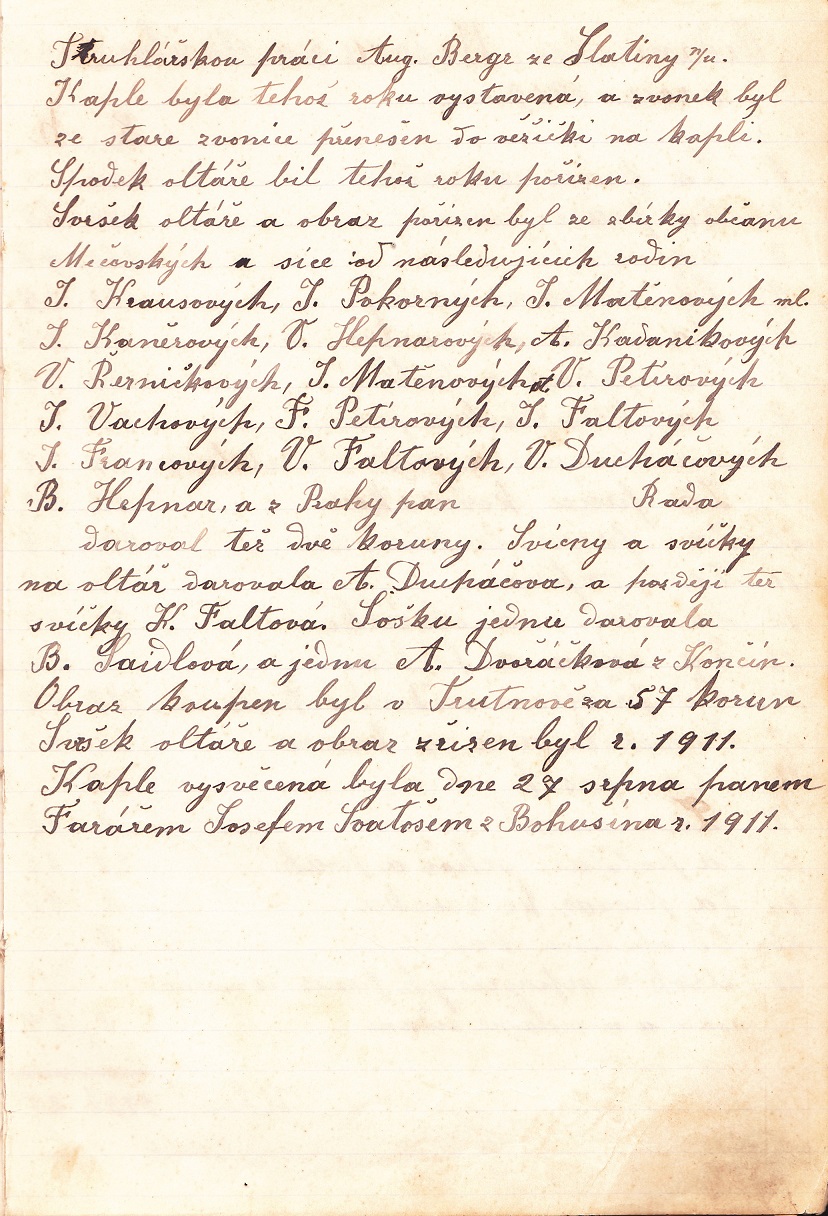 Truhlářskou práci Aug. Bergr ze Slatiny n/u.
Kaple byla tehož roku vystavená, a zvonek byl
ze stare zvonice přenešen do věžički na kapli.
Spodek oltáře bil tehož roku pořízen.
Svršek oltáře a obraz pořízen byl ze zbírky občanu
Mečovských a sice od následujících rodin
J. Krausových, J. Pokorných, J. Matěnových ml.
J. Kaněrových, V. Hepnarových, A. Kadanikových
V. Řerničkových, J. Matěnových a V. Petirových
J. Vachových, F. Petirových, J. Faltových
J. Francových, V. Faltových, V. Ducháčových
B. Hepnar, a z Prahy pan Rada
daroval tež dvě koruny. Svicny a svíčky
na oltář darovala A. Ducháčova, a později tež
svíčky K. Faltová. Sošku jednu darovala
B. Saidlová, a jednu A. Dvořáčková z Končin.
Obraz koupen byl v Trutnově za 57 korun
Svršek oltáře a obraz zřizen byl r. 1911.
Kaple vysvěcená byla dne 27 srpna panem
Farářem Josefem Svatošem z Bohusína r. 1911.